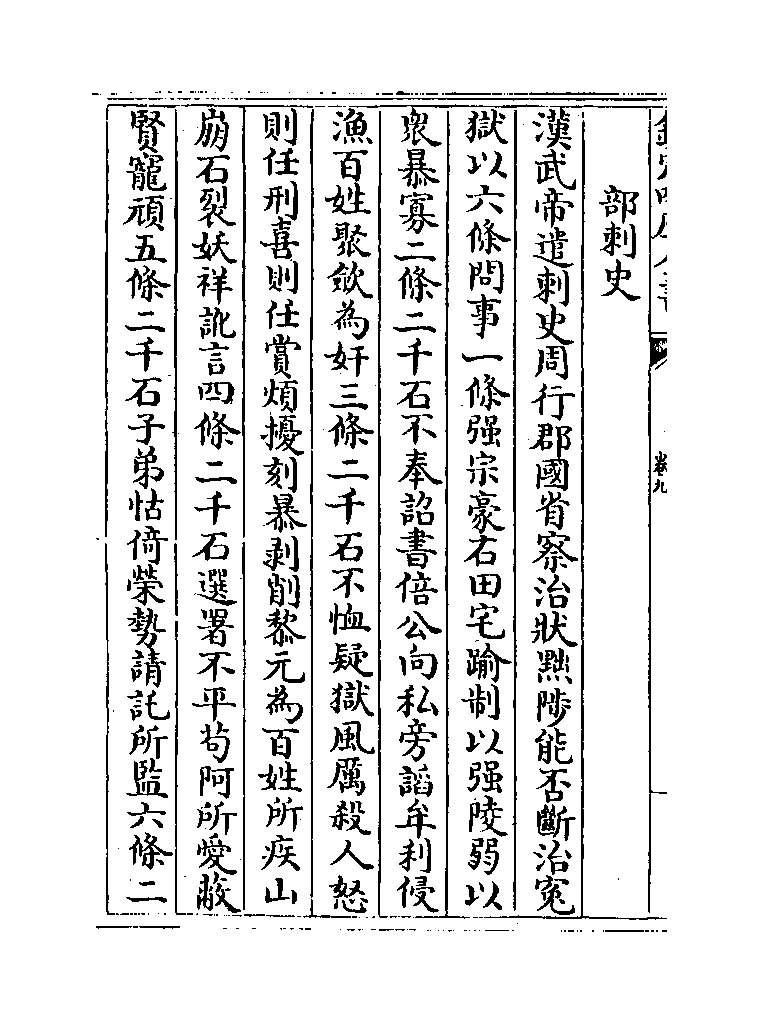 欽定四庫全書
卷九
部刺史
漢武帝遣刺史周行郡國省察治狀黜陟能否斷治寃
獄以六條問事一條强宗豪右田宅踰制以强陵弱以
衆暴寡二條二千石不奉詔書倍公向私旁謟牟利侵
漁百姓聚歛為奸三條二千石不恤疑獄風厲殺人怒
則任刑喜則任賞煩擾刻暴剥削黎元為百姓所疾山
崩石裂妖祥訛言四條二千石選署不平茍阿所愛蔽
賢寵頑五條二千石子弟怙倚榮勢請託所監六條二